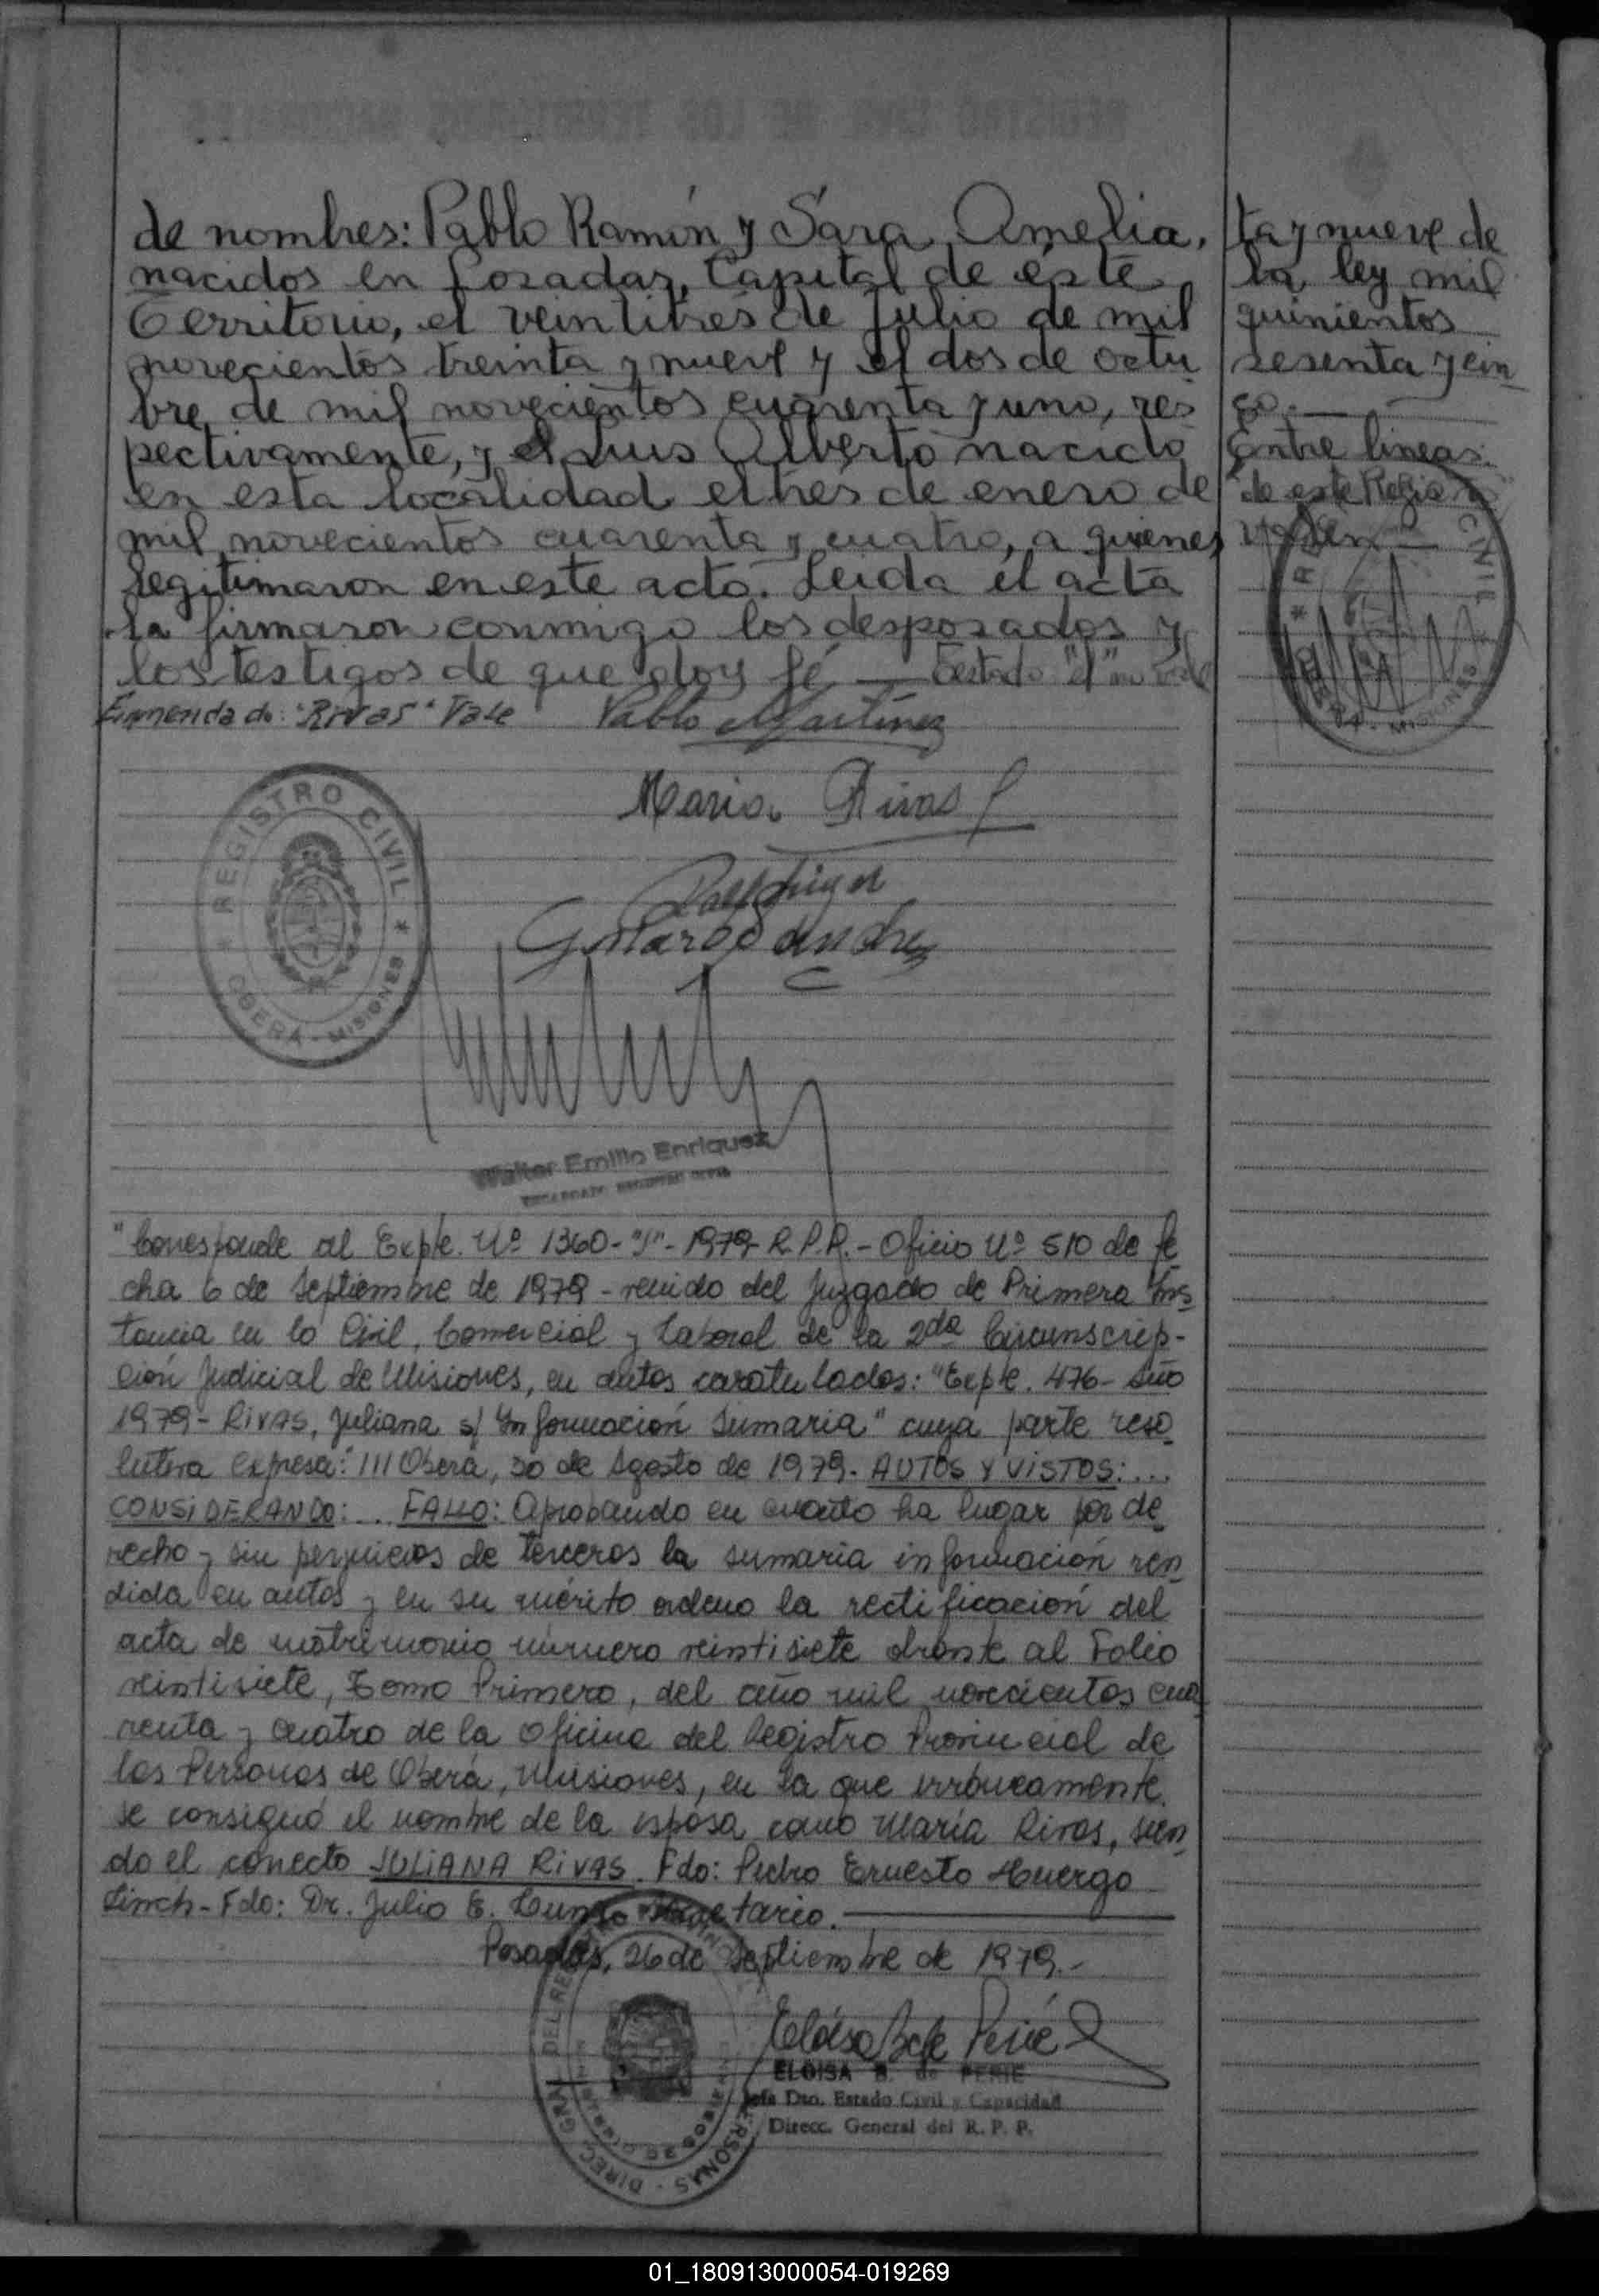 de nombres: Pablo Ramón y Sara Amelia,
nacidos en Posadas, Capital de éste
Territorio, el veintitrés de Julio de mil
novecientos treinta y nueve y el dos de octu
bre de mil novecientos cuarenta y uno, res
pectivamente, y el Luis Alberto nacido
en esta localidad el trés de enero de
mil novecientos cuarenta y cuatro, a quienes
legitimaron en este acto. Leida el acta
la firmaron conmigo los desposados y
los testigos de que doy fé — Testado "el" no vale
Enmendado: "Rivas" Vale
Pablo Martínez
Maria Rivas
ta y nueve de
la ley mil
quinientos
sesenta y cin
co.—
Entre lineas:
de este Regis
valen—
REGISTRO CIVIL
OBERA - MISIONES
CIVIL
OBERA - MISIONES
Walter Emilio Enriquez
ENCARGADO REGISTRO CIVIL
"Corresponde al Expte. Nº 1360-"J"-1979-R.P.P.- Oficio Nº 510 de fe
cha 6 de Septiembre de 1979 - venido del Juzgado de Primera Ins
tancia en lo Civil, Comercial y Laboral de la 2da Circunscrip-
ción Judicial de Misiones, en autos caratulados: "Expte. 476- Año
1979- RIVAS, Juliana s/ Información Sumaria" cuya parte reso
lutiva expresa: "///Oberá, 30 de Agosto de 1979.- AUTOS Y VISTOS:...
CONSIDERANDO:... FALLO: Aprobando en cuanto ha lugar por de
recho y sin perjuicios de terceros la sumaria información ren
dida en autos y en su mérito ordeno la rectificación del
acta de matrimonio número veintisiete obrante al Folio
veintisiete, Tomo Primero, del año mil novecientos cua
renta y cuatro de la Oficina del Registro Provincial de
las Personas de Oberá, Misiones, en la que erróneamente
se consignó el nombre de la esposa como María Rivas, sien
do el correcto JULIANA RIVAS. Fdo: Pedro Ernesto Huergo
Linch- Fdo: Dr. Julio E. Secretario.
Posadas, 26 de Septiembre de 1979.-
ELOISA B. de PERIE
Jefa Dto. Estado Civil y Capacidad
Direcc. General del R. P. P.
01_180913000054-019269